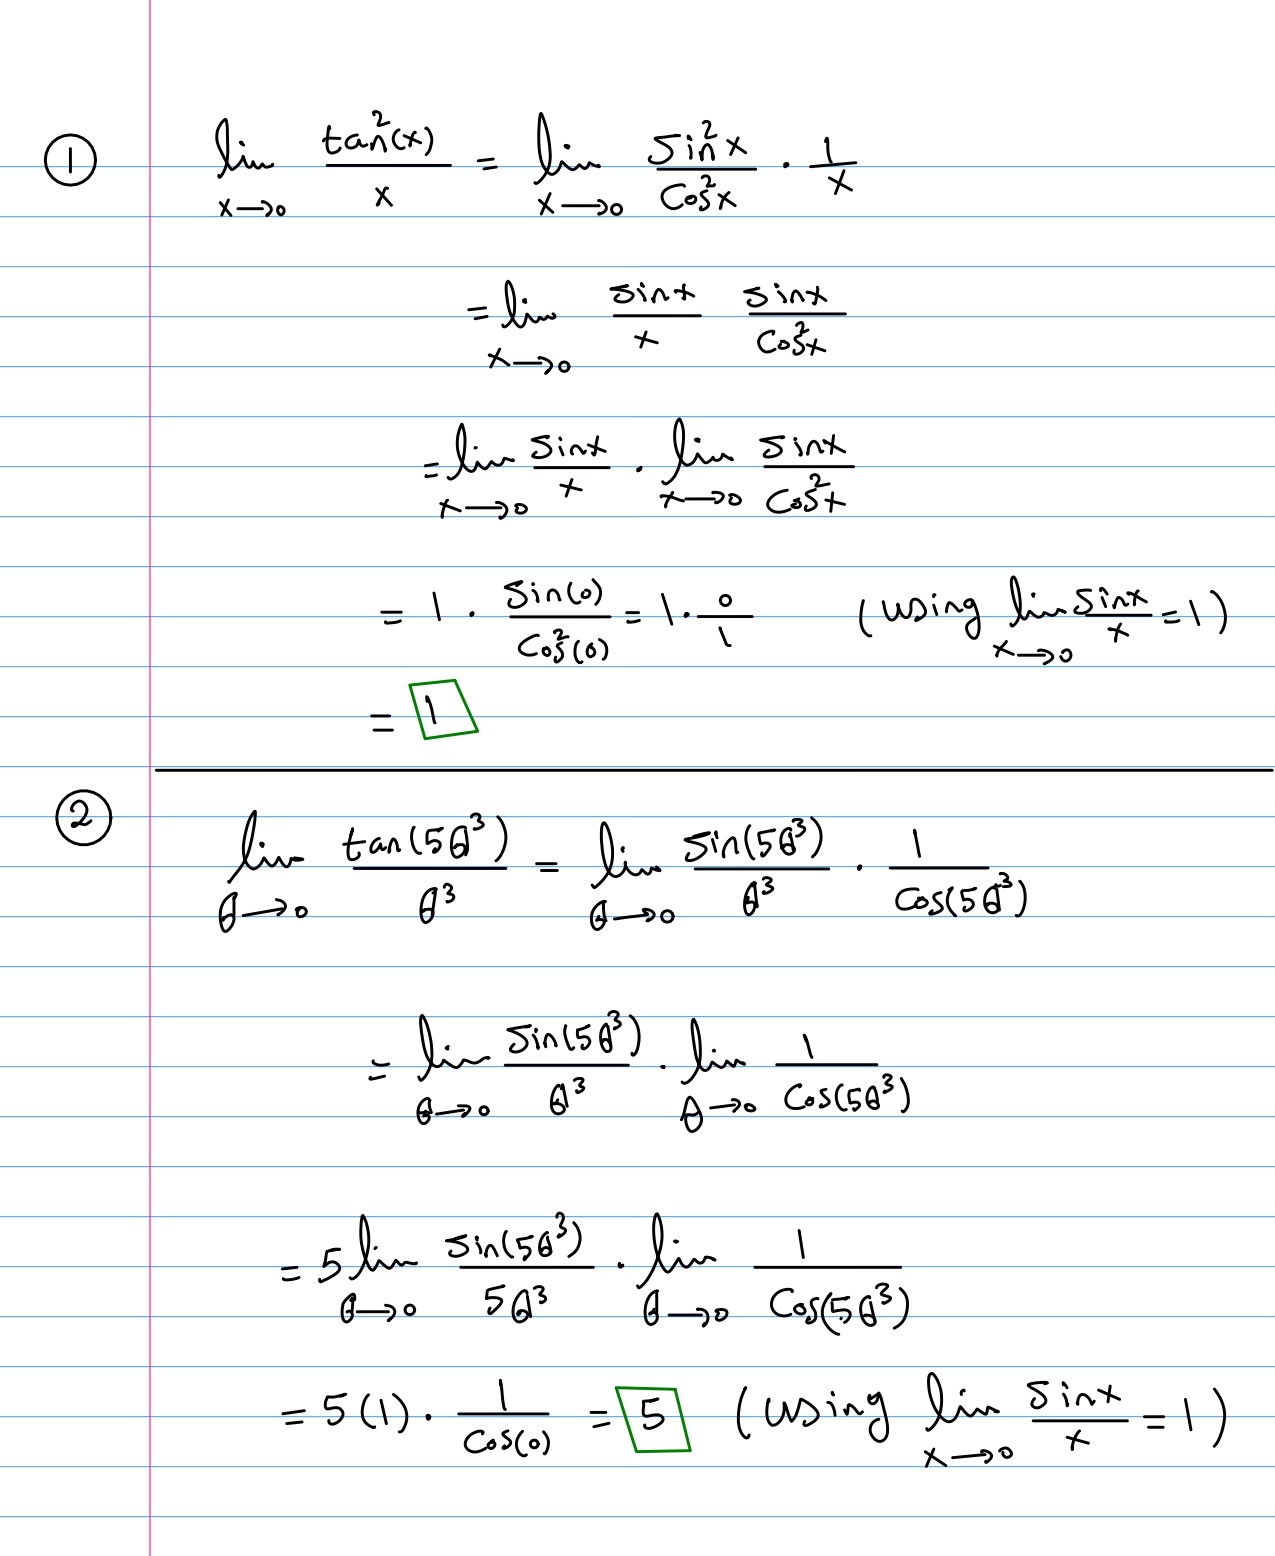 ① lim_{x→0} tan²(x)/x = lim_{x→0} sin²x/cos²x · 1/x
= lim_{x→0} sinx/x sinx/cos²x
= lim_{x→0} sinx/x · lim_{x→0} sinx/cos²x
= 1 · sin(0)/cos²(0) = 1 · 0/1 (using lim_{x→0} sinx/x = 1)
= 1
② lim_{θ→0} tan(5θ³)/θ³ = lim_{θ→0} sin(5θ³)/θ³ · 1/cos(5θ³)
= lim_{θ→0} sin(5θ³)/θ³ · lim_{θ→0} 1/cos(5θ³)
= 5 lim_{θ→0} sin(5θ³)/5θ³ · lim_{θ→0} 1/cos(5θ³)
= 5(1) · 1/cos(0) = 5 (using lim_{x→0} sinx/x = 1)